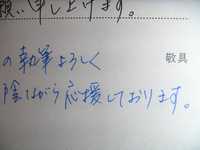 願い申し上げます。
の執筆よろしく
敬具
陰ながら応援しております。